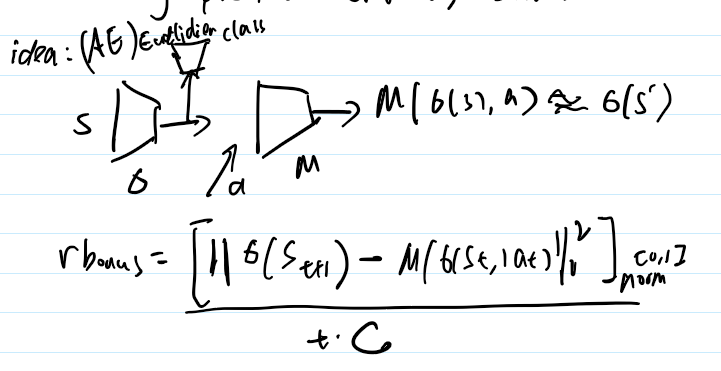 idea: (AE) Euclidien class
S σ a M M(σ(s), a) ≈ σ(s')
r bonus = [|| σ(S t+1) - M(σ(St, 1 at) ||² ] norm [0,1]
t · C